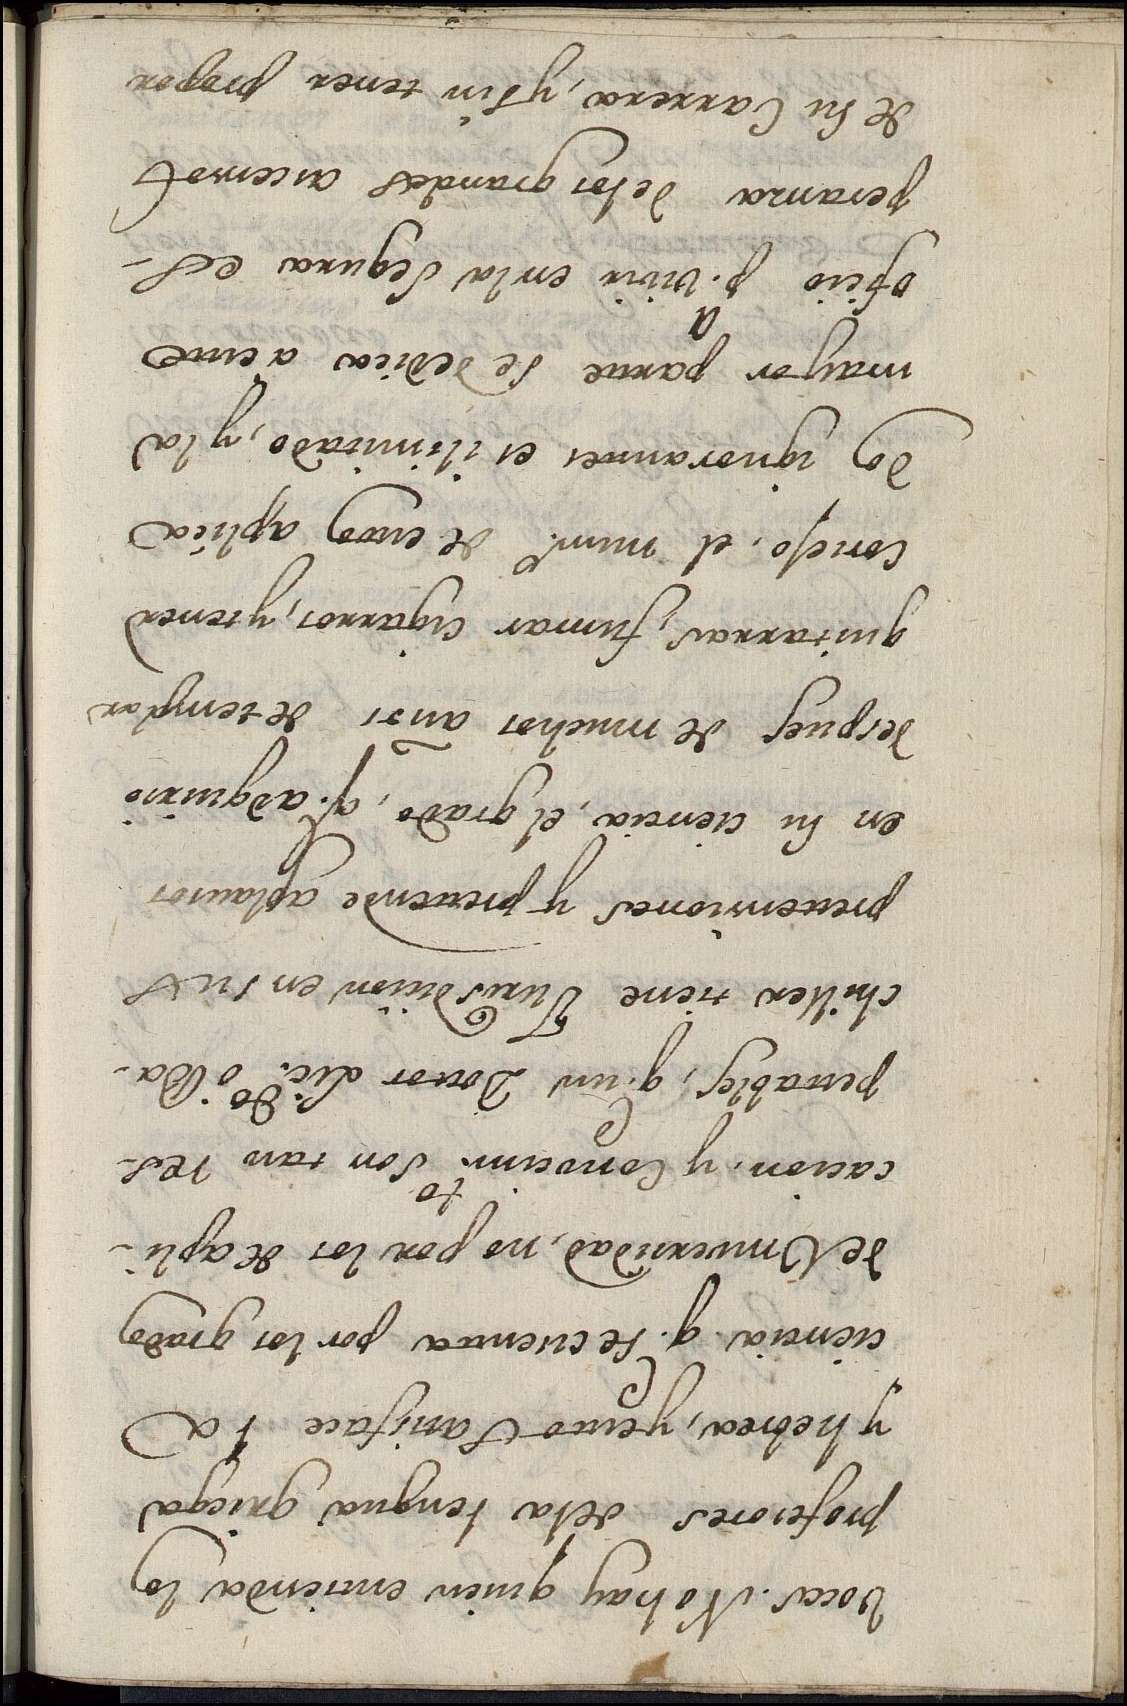 voces. No hay quien entienda los
profesores dela lengua griega
y hebrea, y esto satisface la
ciencia q. se cuenta por los grados
de Universidad, no por los de apli-
cacion, y Conocim.to Son tan res-
petables, q. un Doctor Lic.do ò Ba-
chiller tiene Jurisdicion en sus
pretensiones y pretende aplausos
en su ciencia, el grado, q. adquirio
despues de muchos años de templar
guitarras, fumar cigarros, y tener
cortejo. el num.o de estos aplica
dos ignorantes es ilimitado, y la
mayor parte se dedica a este
oficio p.a vivir en la Segura es-
peranza delos grandes ascensos
de su Carrera, y sin tener propor